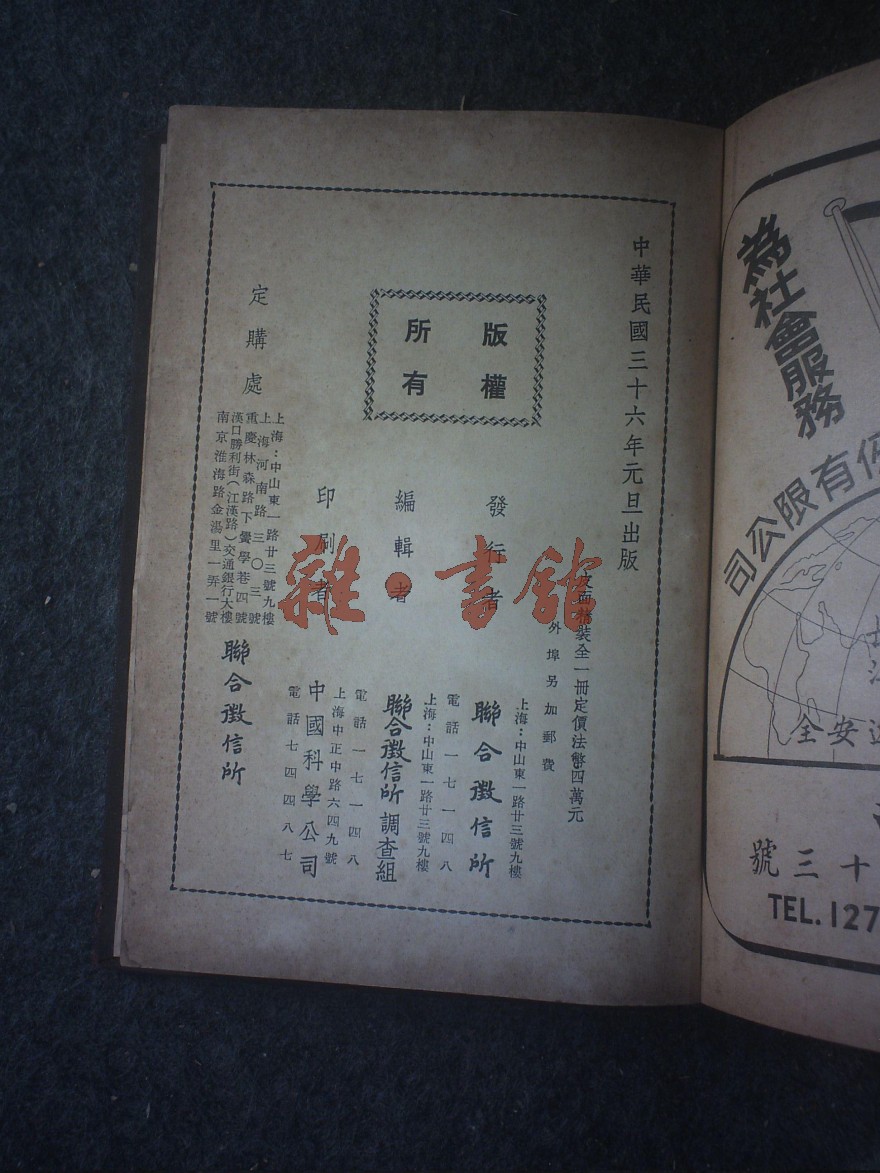 中華民國三十六年元旦出版
皮面精裝全一冊定價法幣四萬元
外埠另加郵費
版權
所有
發行者
上海:中山東一路廿三號九樓
聯合徵信所
電話一七一四八
編輯者
上海:中山東一路廿三號九樓
聯合徵信所調查組
電話一七一四八
印刷者
上海中正中路六四九號
中國科學公司
電話七四四八七
定購處
上海:中山東一路廿三號九樓
上海河南路三〇三號
重慶林森路下黌學巷四號
漢口勝利街(江漢路)交通銀行大樓
南京淮海路金湯里一弄一號
聯合徵信所
雜·書館
為社會服務
有限公司
安全
十三號
TEL.127